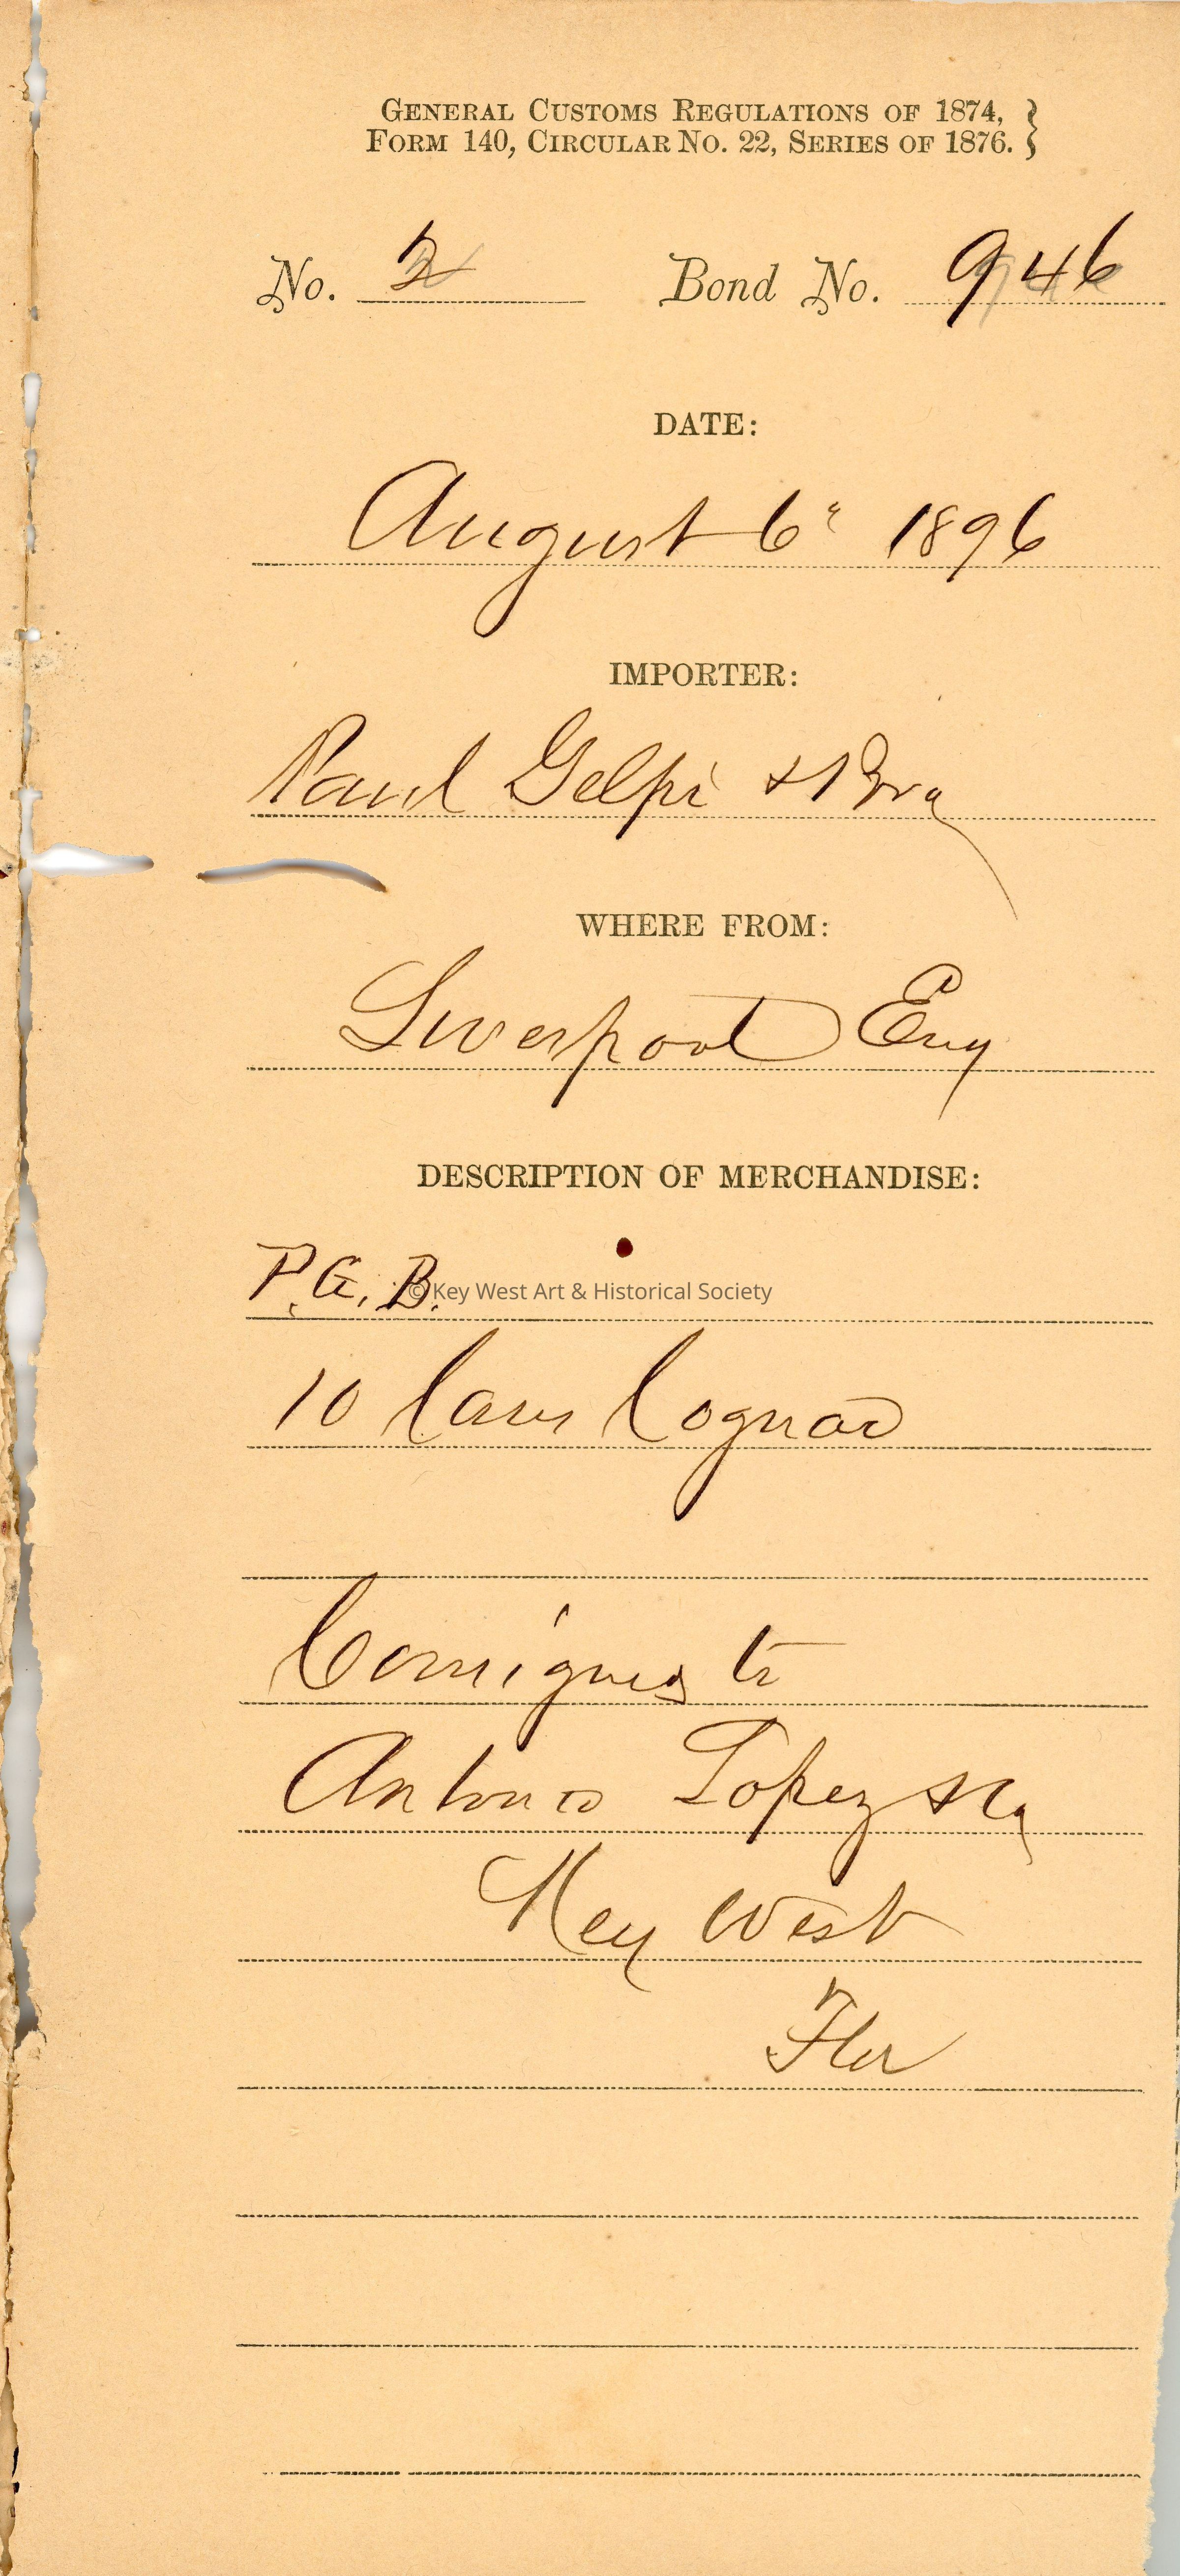 GENERAL CUSTOMS REGULATIONS OF 1874,
FORM 140, CIRCULAR NO. 22, SERIES OF 1876.
No. 2 Bond No. 946
DATE:
August 6" 1896
IMPORTER:
Paul Gelpi & Bro
WHERE FROM:
Liverpool Eng
DESCRIPTION OF MERCHANDISE:
P.G.B.
© Key West Art & Historical Society
10 Cases Cognac
Consigned to
Antonio Lopez & Co
Key West
Flor